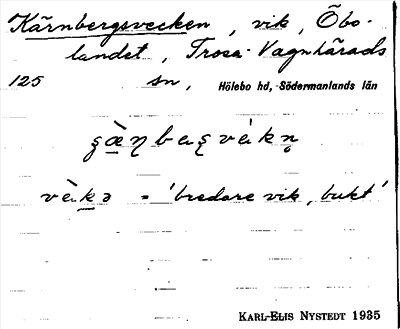 Kärnbergsvecken, vik, Öbo-
landet, Trosa-Vagnhärads
125 sn, Hölebo hd, Södermanlands län
vὲkə = 'bredare vik, bukt'
KARL-ELIS NYSTEDT 1935